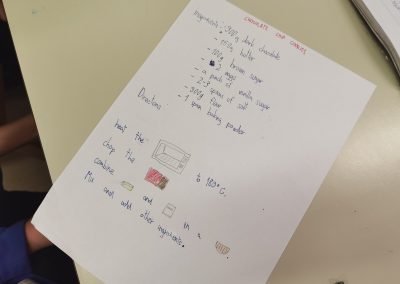 CHOCOLATE CHIP COOKIES
Ingredients: - 300g dark chocolate
- 150g butter
- 100g brown sugar
- 2 eggs
- a pack of vanilla sugar
- 2-3 spoons of salt
- 300g flour
- 1 spoon baking powder
Directions
heat the to 180°C.
chop the
combine and in a .
Mix and add other ingredients.